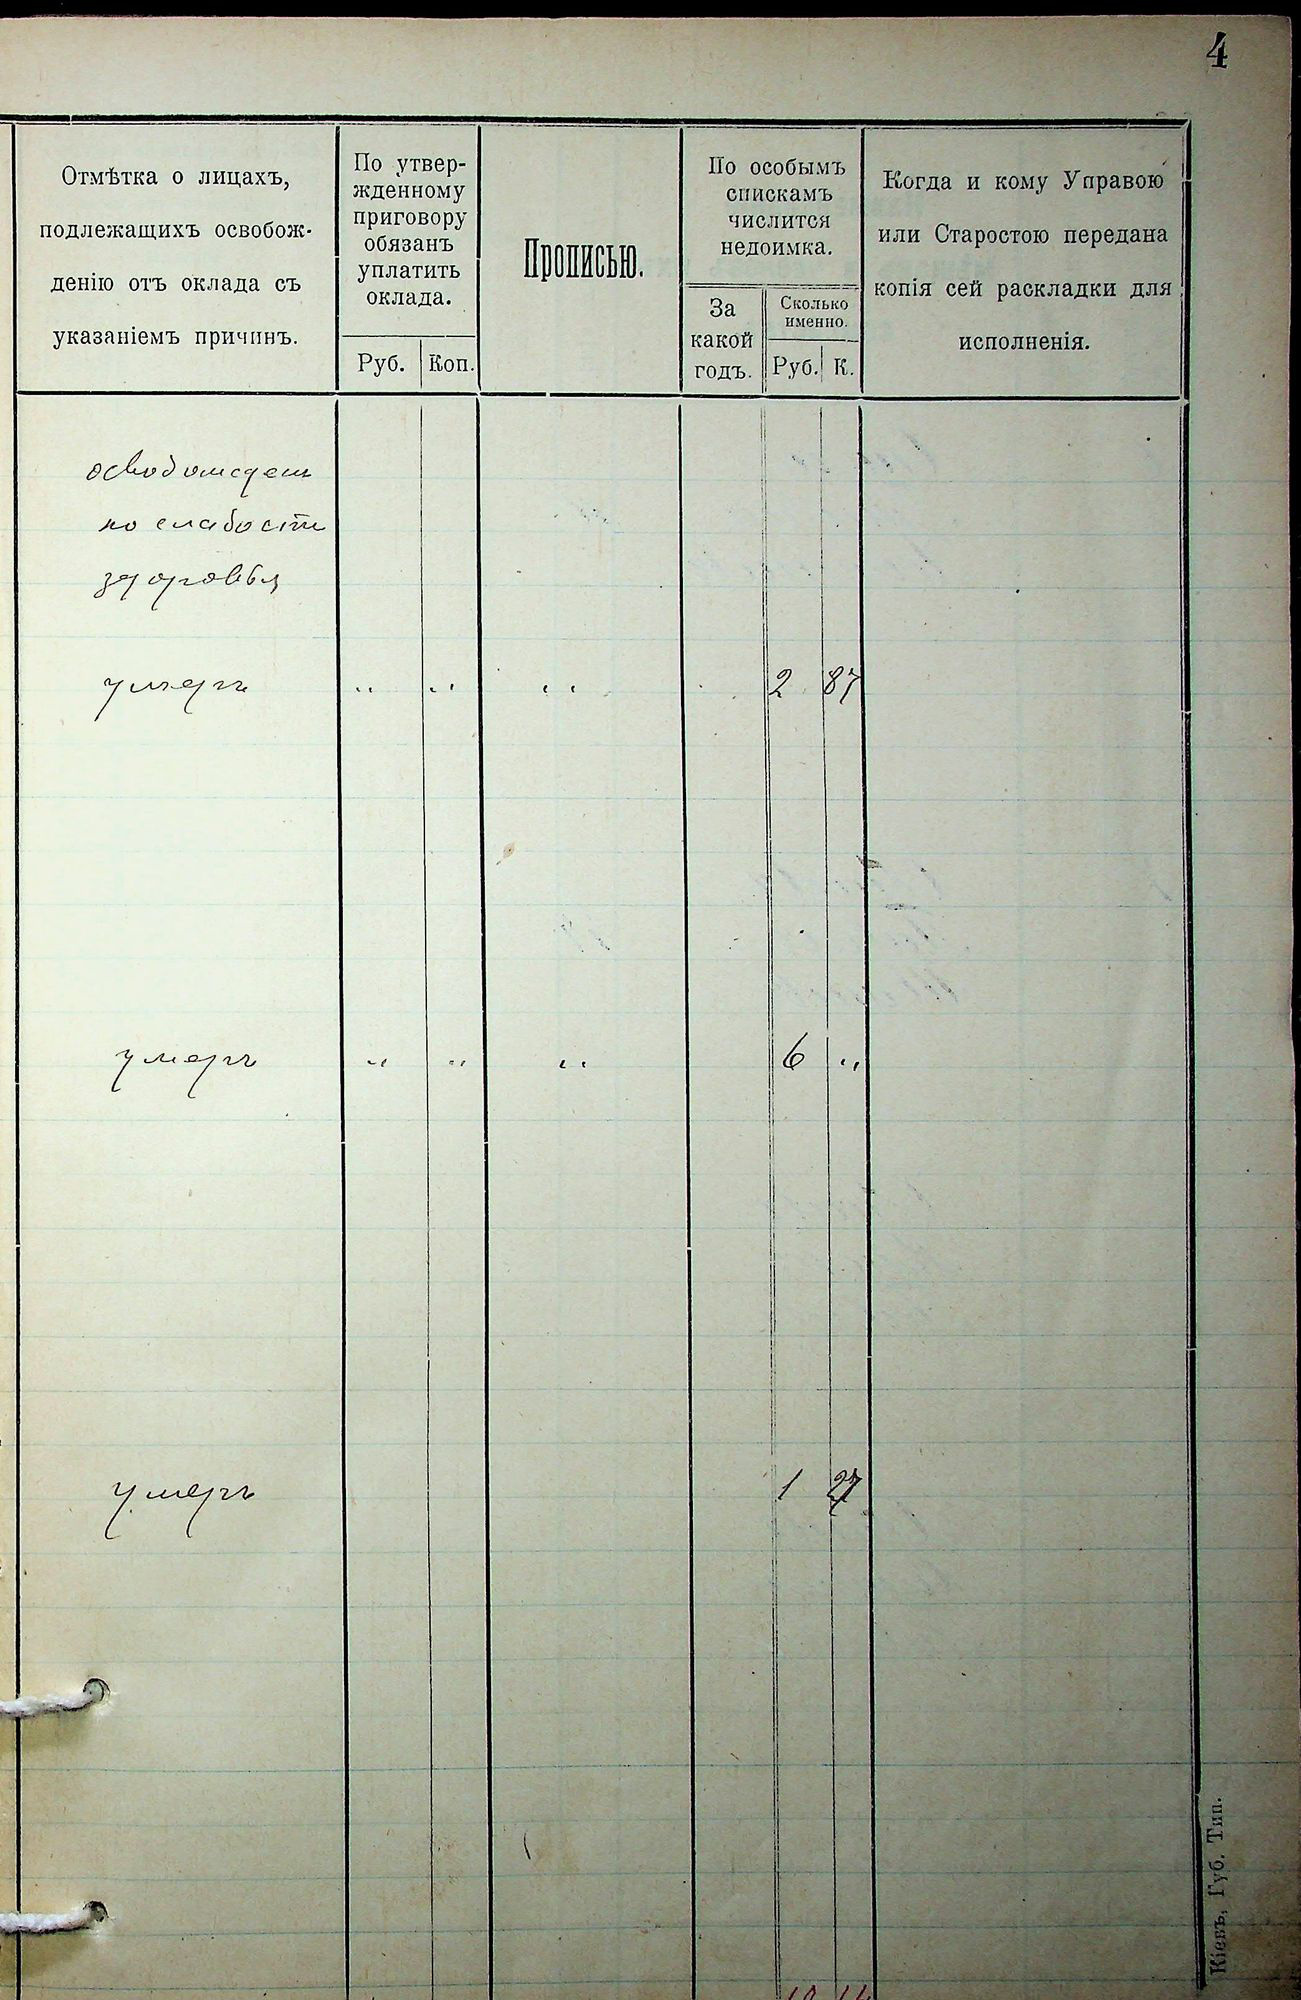 4
Отмѣтка о лицахъ,
подлежащихъ освобож-
денію отъ оклада съ
указаніемъ причинъ.
По утвер-
жденному
приговору
обязанъ
уплатить
оклада.
Руб.
Коп.
Прописью.
По особымъ
спискамъ
числится
недоимка.
За
какой
годъ.
Сколько
именно.
Руб.
К.
Когда и кому Управою
или Старостою передана
копія сей раскладки для
исполненія.
освобожден
по слабости
здоровья
умеръ " " " 2 87
умеръ " " " 6 "
умеръ 1 27
Кіевъ, Губ. Тип.